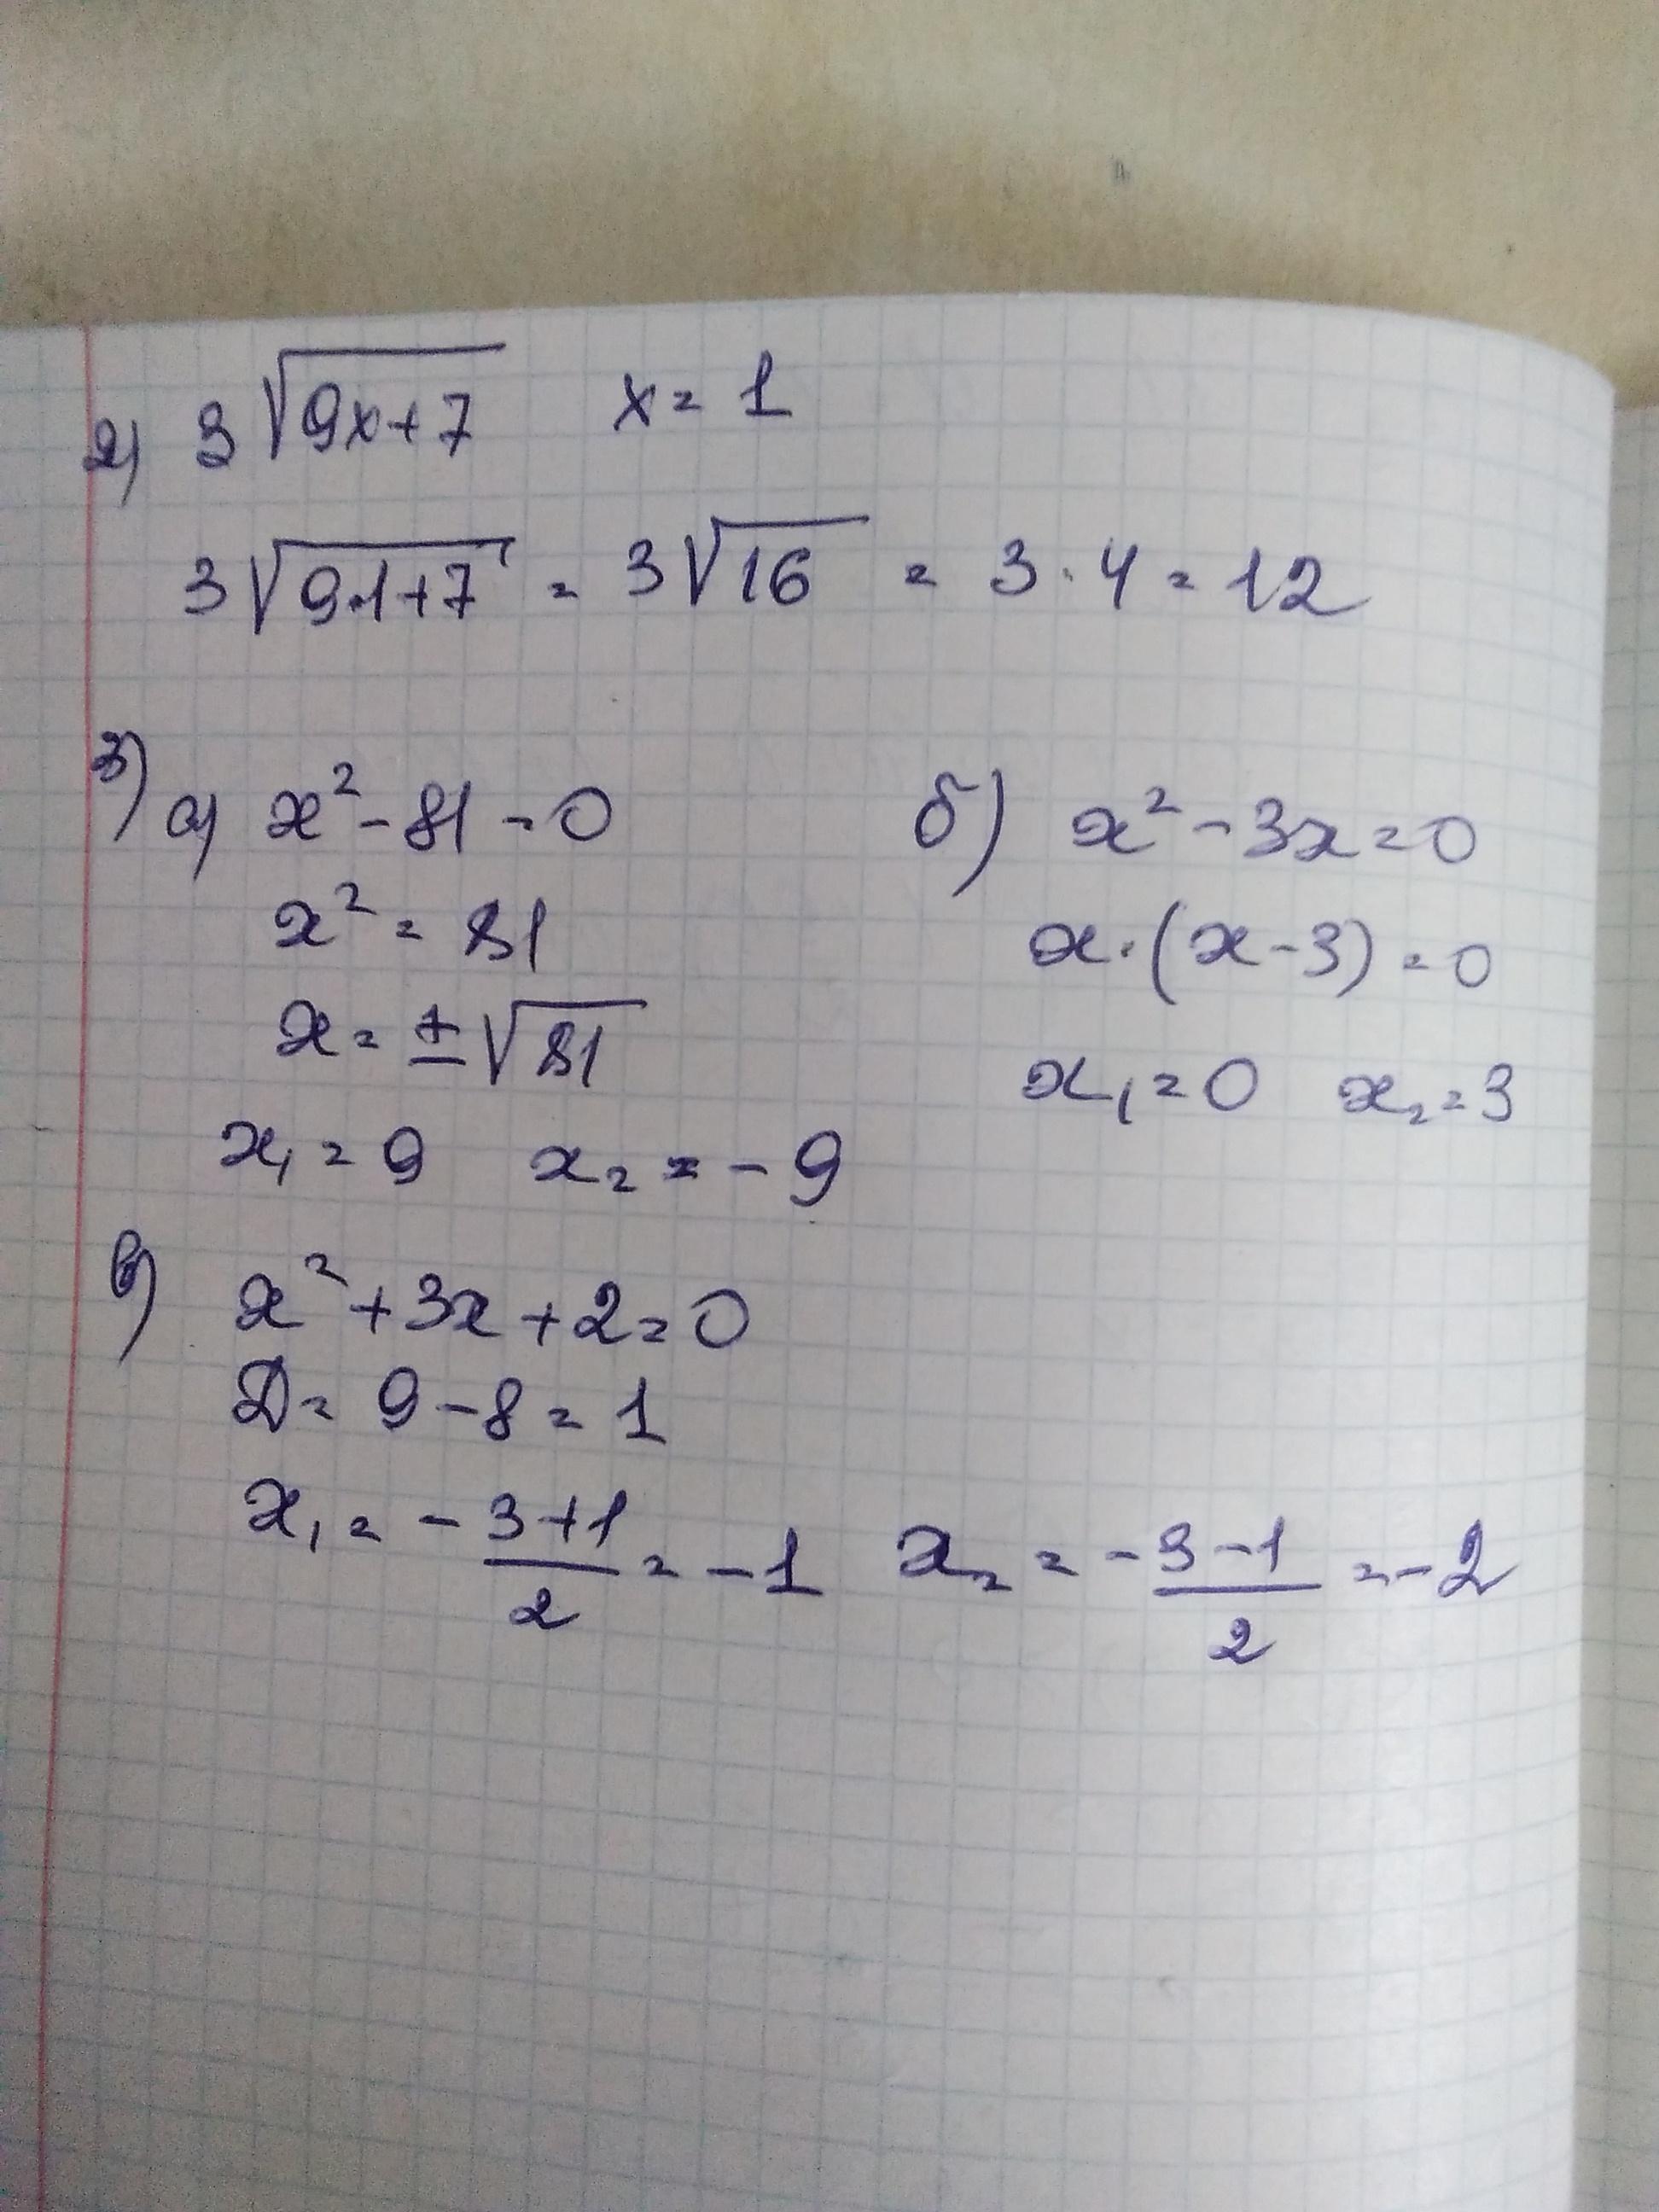 2) 3√(9x+7) x = 1
3√(9·1+7) = 3√16 = 3·4 = 12
3) а) x² - 81 = 0
x² = 81
x = ±√81
x₁ = 9 x₂ = -9
б) x² - 3x = 0
x·(x-3) = 0
x₁ = 0 x₂ = 3
в) x² + 3x + 2 = 0
D = 9 - 8 = 1
x₁ = (-3+1)/2 = -1 x₂ = (-3-1)/2 = -2